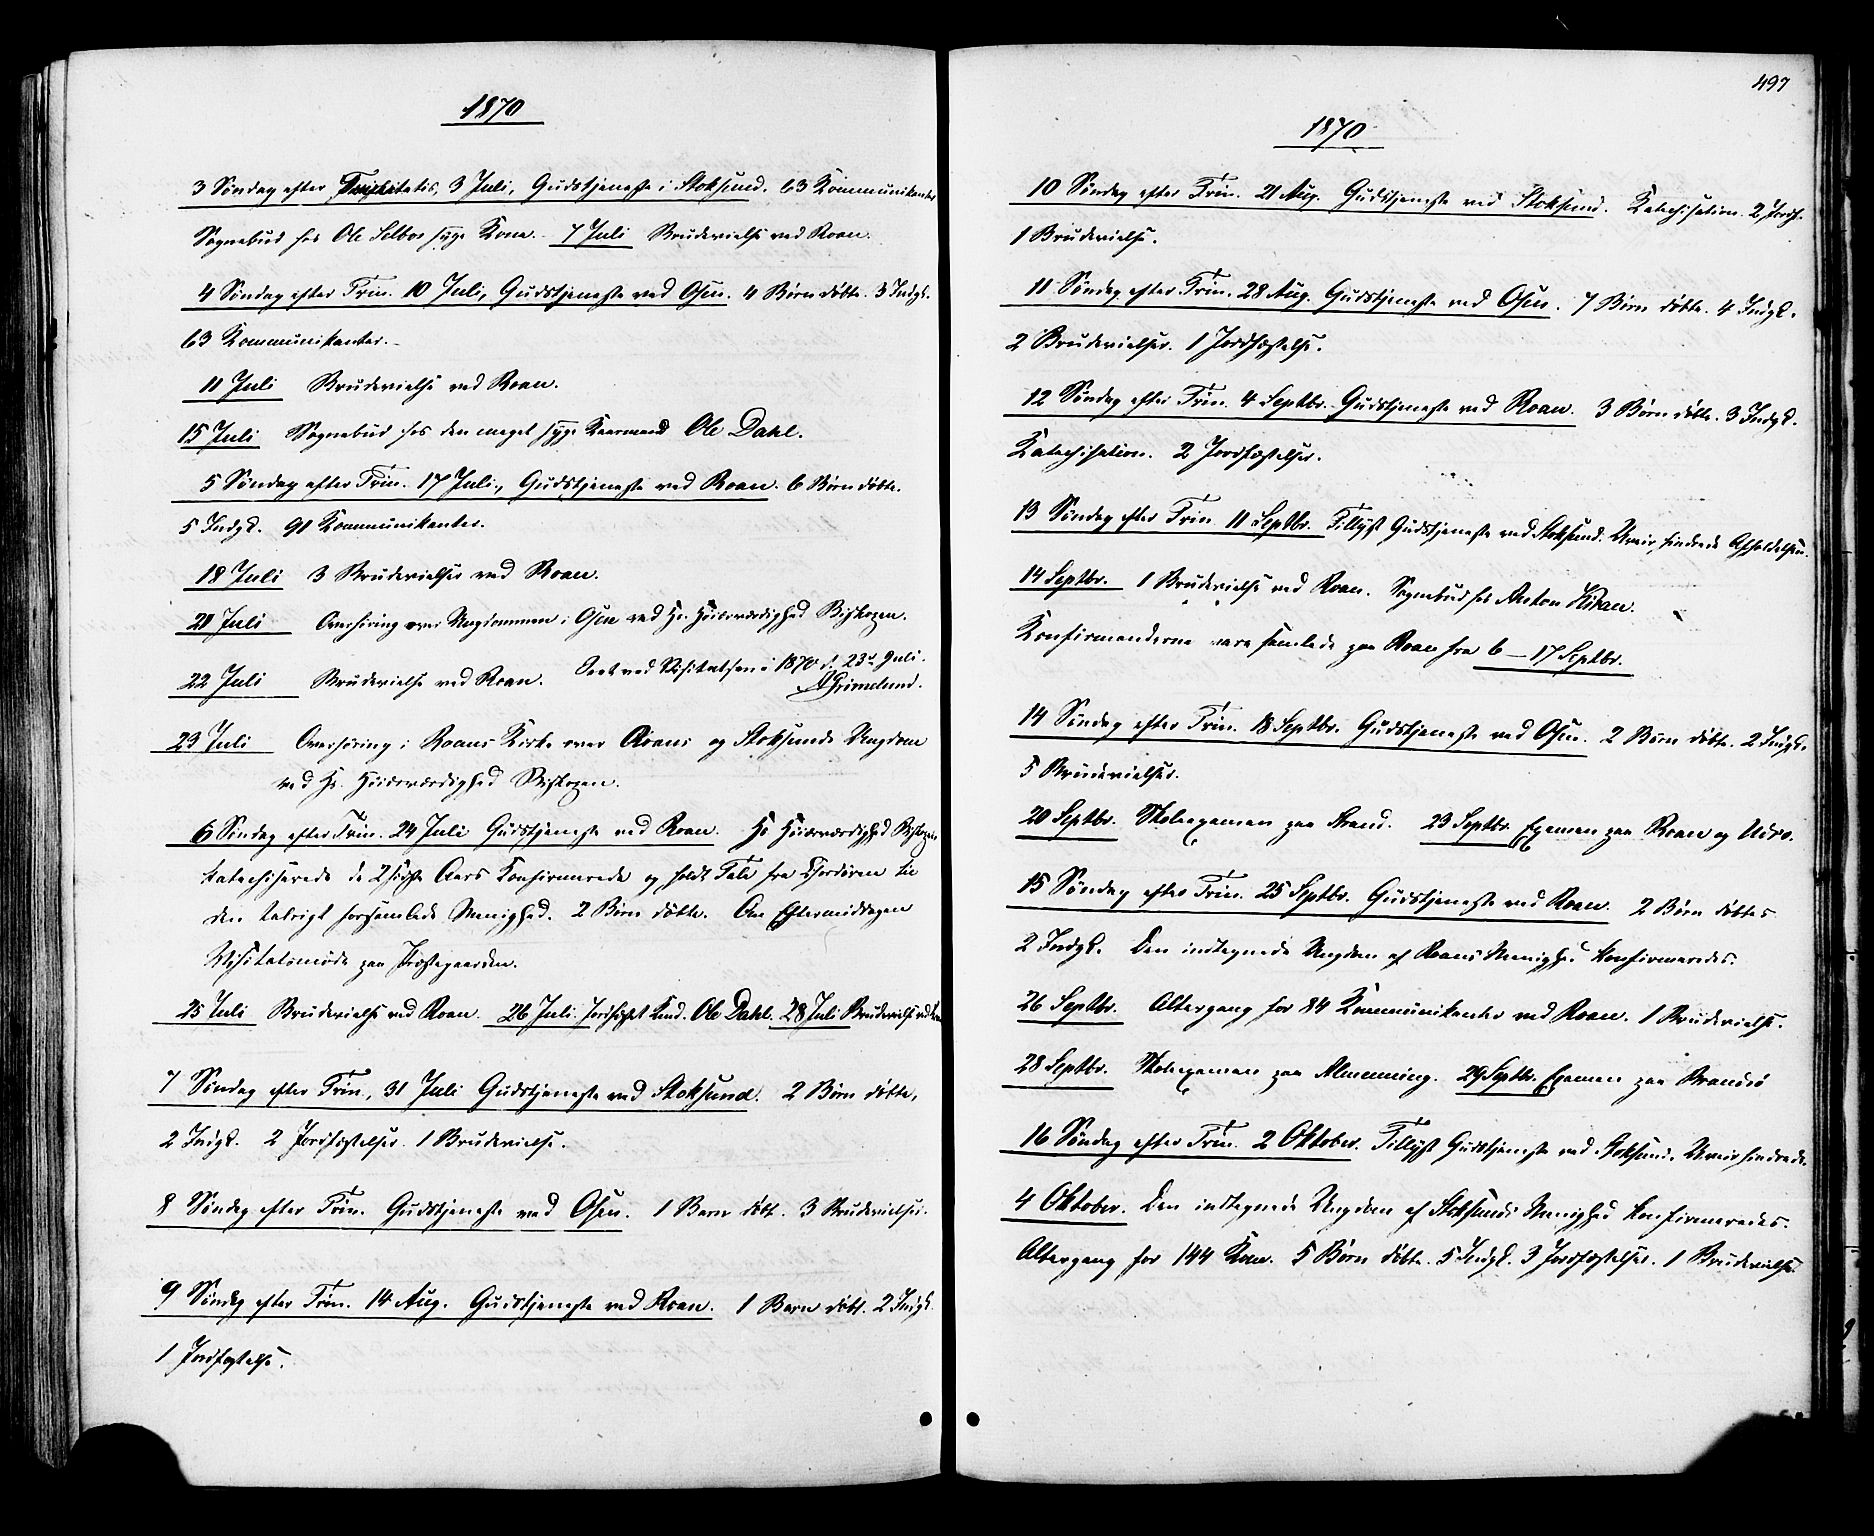 1870
3 Søndag efter Trinitatis, 3 Juli, Gudstjeneste i Stoksund. 63 Kommunikanter
Sognebud hos Ole Selbos syge Kone. 7 Juli Brudevielse ved Roan.
4 Søndag efter Trin. 10 Juli, Gudstjeneste ved Osen. 4 Børn døbte. 3 Indgk.
63 Kommunikanter.
11 Juli Brudevielse ved Roan.
15 Juli Sognebud hos den meget syge Ole Dahl.
5 Søndag efter Trin. 17 Juli, Gudstjeneste ved Roan. 6 Børn døbte.
5 Indgk. 91 Kommunikanter.
18 Juli 3 Brudevielser ved Roan.
20 Juli Overhøring over Ungdommen i Osen ved Hs. Høiærværdighed Biskopen.
22 Juli Brudevielse ved Roan. Seet ved Visitatsen i 1870 d. 23de Juli.
Grimelund.
23 Juli Overhøring i Roans Kirke over Roans og Stoksunds Ungdom
ved Hs. Høiærværdighed Biskopen.
6 Søndag efter Trin. 24 Juli Gudstjeneste ved Roan. Hs Høiærværdighed Biskopen
katechiserede de 2 sidste Aars Konfirmerede og holdt Tale fra Chordøren til
den talrigt forsamlede Menighed. 2 Børn døbte. Om Eftermiddagen
Visitatsmøde paa Præstegaarden.
25 Juli Brudevielse ved Roan. 26 Juli Jordfæstet Ole Dahl. 28 Juli Brudevielse ved Roan
7 Søndag efter Trin., 31 Juli Gudstjeneste ved Stoksund. 2 Børn døbte,
2 Indgk. 2 Jordfæstelser. 1 Brudevielse.
8 Søndag efter Trin. Gudstjeneste ved Osen. 1 Barn døbt. 3 Brudevielser.
9 Søndag efter Trin. 14 Aug. Gudstjeneste ved Roan. 1 Barn døbt. 2 Indgk.
1 Jordfæstelse.
497
1870
10 Søndag efter Trin. 21 Aug. Gudstjeneste ved Stoksund. Katechisation. 2 Jordf.
1 Brudevielse.
11 Søndag efter Trin. 28 Aug. Gudstjeneste ved Osen. 7 Børn døbte. 4 Indgk.
2 Brudevielser. 1 Jordfæstelse.
12 Søndag efter Trin. 4 Septbr. Gudstjeneste ved Roan. 3 Børn døbte. 3 Indgk.
Katechisation. 2 Jordfæstelser.
13 Søndag efter Trin 11 Septbr. Tillyst Gudstjeneste ved Stoksund. Uveir hindrede Afholdelsen.
14 Septbr. 1 Brudevielse ved Roan. Sognebud hos Anton
Konfirmanderne vare samlede paa Roan fra 6 – 17 Septbr.
14 Søndag efter Trin. 18 Septbr. Gudstjeneste ved Osen. 2 Børn døbte. 2 Indgk.
5 Brudevielser.
20 Septbr. Skoleexamen paa Strand. 23 Septbr. Examen paa Roan og
15 Søndag efter Trin. 25 Septbr. Gudstjeneste ved Roan. 2 Børn døbtes
2 Indgk. Den indtegnede Ungdom af Roans Menighed konfirmeredes.
26 Septbr. Altergang for 84 Kommunikanter ved Roan. 1 Brudevielse.
28 Septbr. Skoleexamen paa Almenning. 29 Septbr. Examen paa Brandsø
16 Søndag efter Trin. 2 Oktober. Tillyst Gudstjeneste ved Stoksund. Uveir hindrede.
4 Oktober. Den indtegnede Ungdom af Stoksunds Menighed konfirmeredes.
Altergang for 144 Kom. 5 Børn døbte. 5 Indgk. 3 Jordfæstelser. 1 Brudevielse.